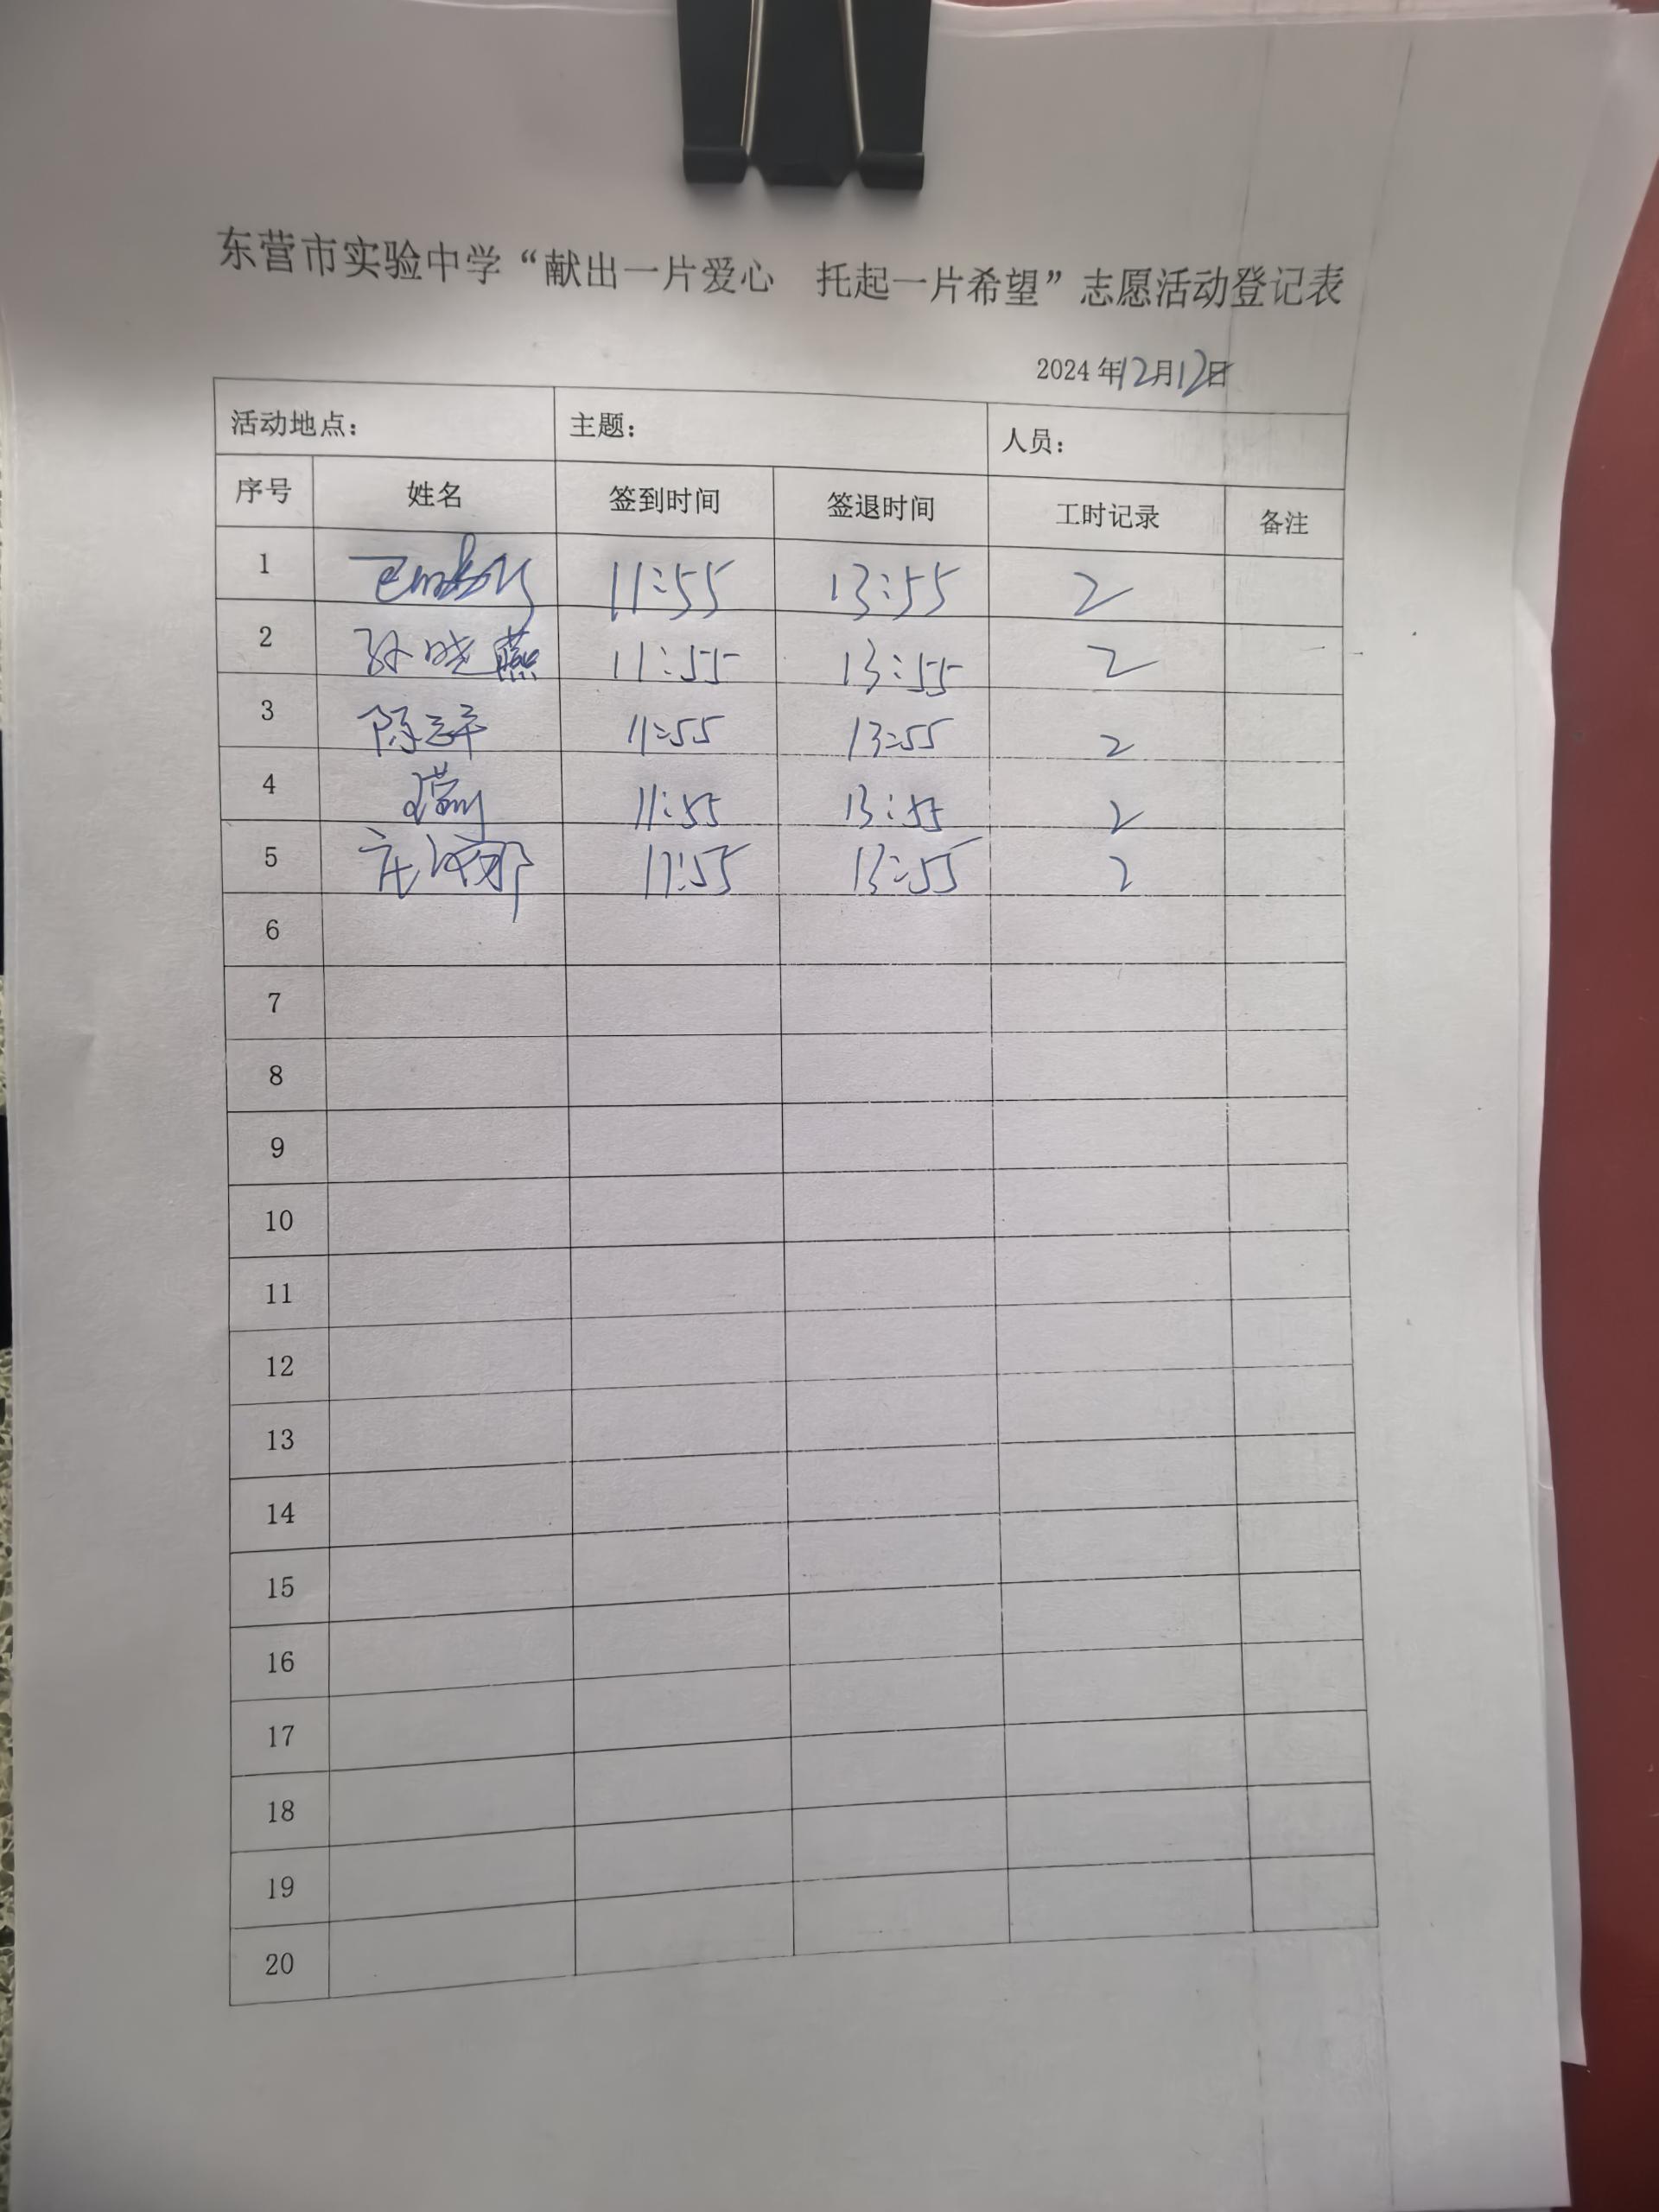 东营市实验中学“献出一片爱心 托起一片希望”志愿活动登记表
2024年12月12日
活动地点： 主题： 人员：
序号 姓名 签到时间 签退时间 工时记录 备注
1 11:55 13:55 2
2 孙晓燕 11:55 13:55 2
3 陈 11:55 13:55 2
4 11:55 13:55 2
5 庄 11:55 13:55 2
6
7
8
9
10
11
12
13
14
15
16
17
18
19
20